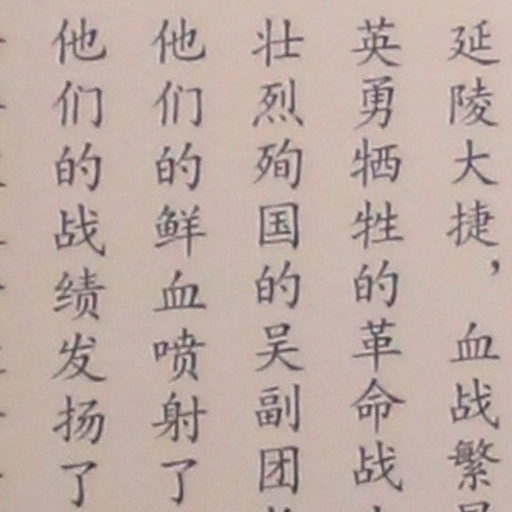 延陵大捷，血战繁
英勇牺牲的革命战
壮烈殉国的吴副团
他们的鲜血喷射了
他们的战绩发扬了